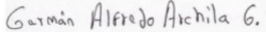 Germán Alfredo Archila G.